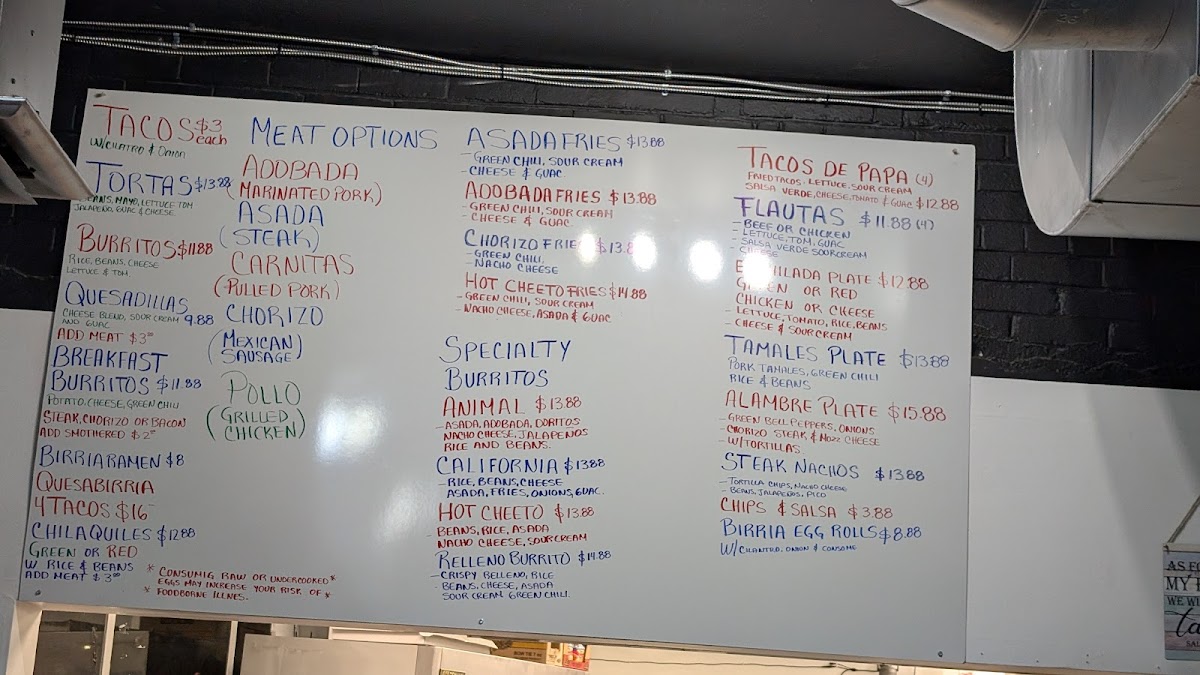 TACOS $3 each
W/CILANTRO & ONION
TORTAS $13.88
BEANS, MAYO, LETTUCE TOM
JALAPENO, GUAC & CHEESE
BURRITOS $11.88
RICE, BEANS, CHEESE
LETTUCE & TOM
QUESADILLAS
CHEESE BLEND, SOUR CREAM 9.88
AND GUAC
ADD MEAT $3.00
BREAKFAST
BURRITOS $11.88
POTATO, CHEESE, GREEN CHILI
STEAK, CHORIZO OR BACON
ADD SMOTHERED $2.00
BIRRIA RAMEN $8
QUESABIRRIA
4 TACOS $16
CHILAQUILES $12.88
GREEN OR RED
W. RICE & BEANS
ADD MEAT $3.00
* CONSUMIG RAW OR UNDERCOOKED *
EGGS MAY INCREASE YOUR RISK OF *
* FOODBORNE ILLNES.
MEAT OPTIONS
ADOBADA
(MARINATED PORK)
ASADA
(STEAK)
CARNITAS
(PULLED PORK)
CHORIZO
(MEXICAN)
SAUSAGE)
POLLO
(GRILLED)
CHICKEN)
ASADA FRIES $13.88
- GREEN CHILI, SOUR CREAM
- CHEESE & GUAC
ADOBADA FRIES $13.88
- GREEN CHILI, SOUR CREAM
- CHEESE & GUAC
CHORIZO FRIES $13.88
- GREEN CHILI
- NACHO CHEESE
HOT CHEETO FRIES $14.88
- GREEN CHILI, SOUR CREAM
- NACHO CHEESE, ASADA & GUAC
SPECIALTY
BURRITOS
ANIMAL $13.88
- ASADA, ADOBADA, DORITOS
NACHO CHEESE, JALAPENOS
RICE AND BEANS.
CALIFORNIA $13.88
- RICE, BEANS, CHEESE
ASADA, FRIES, ONIONS, GUAC.
HOT CHEETO $13.88
- BEANS, RICE, ASADA
NACHO CHEESE, SOUR CREAM
RELLENO BURRITO $14.88
- CRISPY RELLENO, RICE
- BEANS, CHEESE, ASADA
SOUR CREAM GREEN CHILI.
TACOS DE PAPA (4)
FRIED TACOS, LETTUCE, SOUR CREAM
SALSA VERDE, CHEESE, TOMATO & GUAC $12.88
FLAUTAS $11.88 (4)
- BEEF OR CHICKEN
- LETTUCE, TOM, GUAC
- SALSA VERDE SOUR CREAM
- CHEESE
ENCHILADA PLATE $12.88
GREEN OR RED
CHICKEN OR CHEESE
- LETTUCE, TOMATO, RICE, BEANS
- CHEESE & SOUR CREAM
TAMALES PLATE $13.88
PORK TAMALES, GREEN CHILI
RICE & BEANS
ALAMBRE PLATE $15.88
- GREEN BELL PEPPERS, ONIONS
- CHORIZO STEAK, & MOZZ CHEESE
- W/TORTILLAS
STEAK NACHOS $13.88
- TORTILLA CHIPS, NACHO CHEESE
- BEANS, JALAPEÑOS, PICO
CHIPS & SALSA $3.88
BIRRIA EGG ROLLS $8.88
W/ CILANTRO, ONION & CONSOME
MY
WE